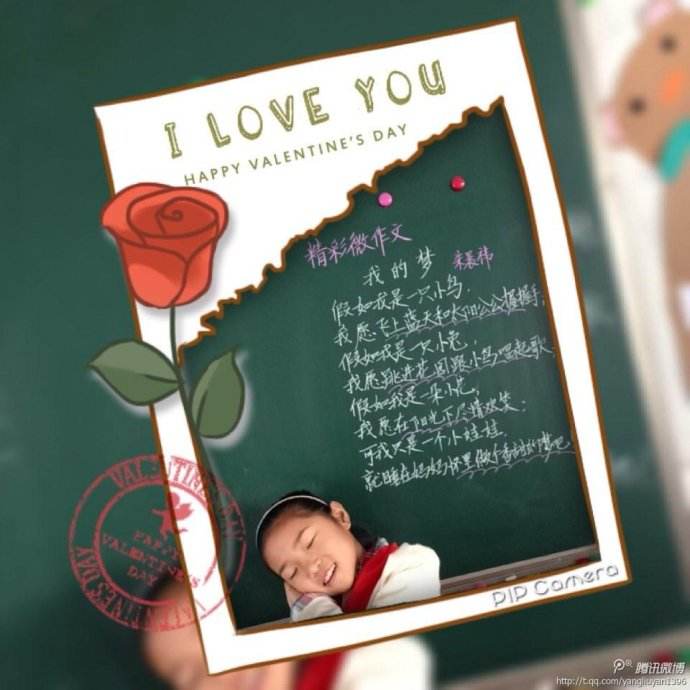 I LOVE YOU
HAPPY VALENTINE'S DAY
精彩微作文
我的梦
假如我是一只小鸟,
我愿飞上蓝天和太阳公公握握手;
假如我是一只小兔,
我愿跳进花园跟小鸟唱起歌;
假如我是一朵小花,
我愿在阳光下尽情欢笑;
可我只是一个小娃娃,
就睡在妈妈怀里做个甜甜的梦吧
VALENTINES DAY
HAPPY
VALENTINE'S
DAY
VALENTINES DAY
PIP Camera
腾讯微博
http://t.qq.com/yangliuyan1396